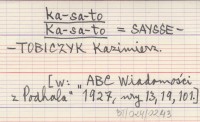 ka-sa-to
Ka-sa-to = SAYSSE-
-TOBICZYK Kazimierz.
[w: "ABC Wiadomości
z Podhala" 1927, nry 13, 19, 101.]